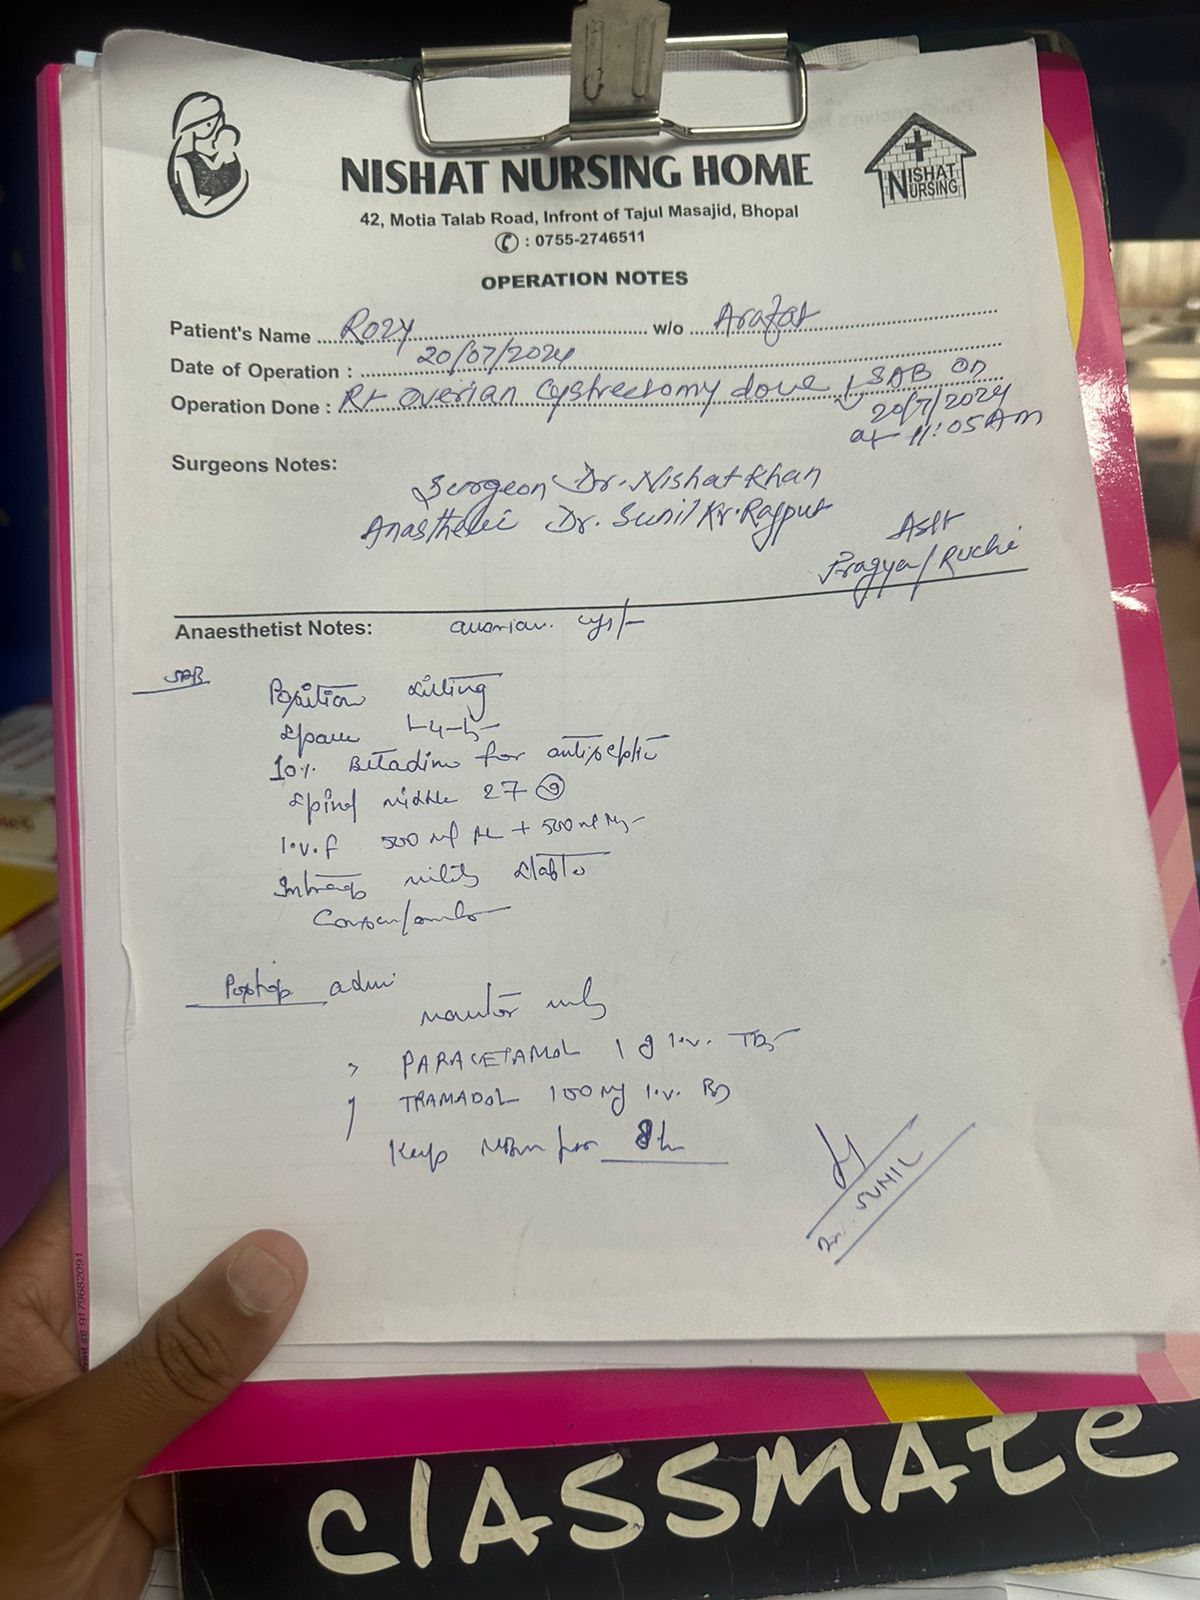 NISHAT NURSING HOME
NISHAT
NURSING
42, Motia Talab Road, Infront of Tajul Masajid, Bhopal
: 0755-2746511
OPERATION NOTES
Patient's Name Rozy w/o Arafat
Date of Operation : 20/07/2024
Operation Done : Rt overian Cystrectomy done SAB on
20/7/2024
at 11:05 AM
Surgeons Notes:
Surgeon Dr. Nishat Khan
Dr. Sunil Kr. Rajput
Asst
Pragya/Ruchi
Anaesthetist Notes: ovarian cyst
SAB
Position sitting
Space L4-5
10% Betadine for antiseptic
27 G
I.V.F 500 ml + 500 ml
stable
Postop
monitor
PARACETAMOL 1 g I.V. TDS
TRAMADOL 100 mg I.V. BD
Keep for 8 h
Dr. SUNIL
@ 9179682091
CLASSMATE